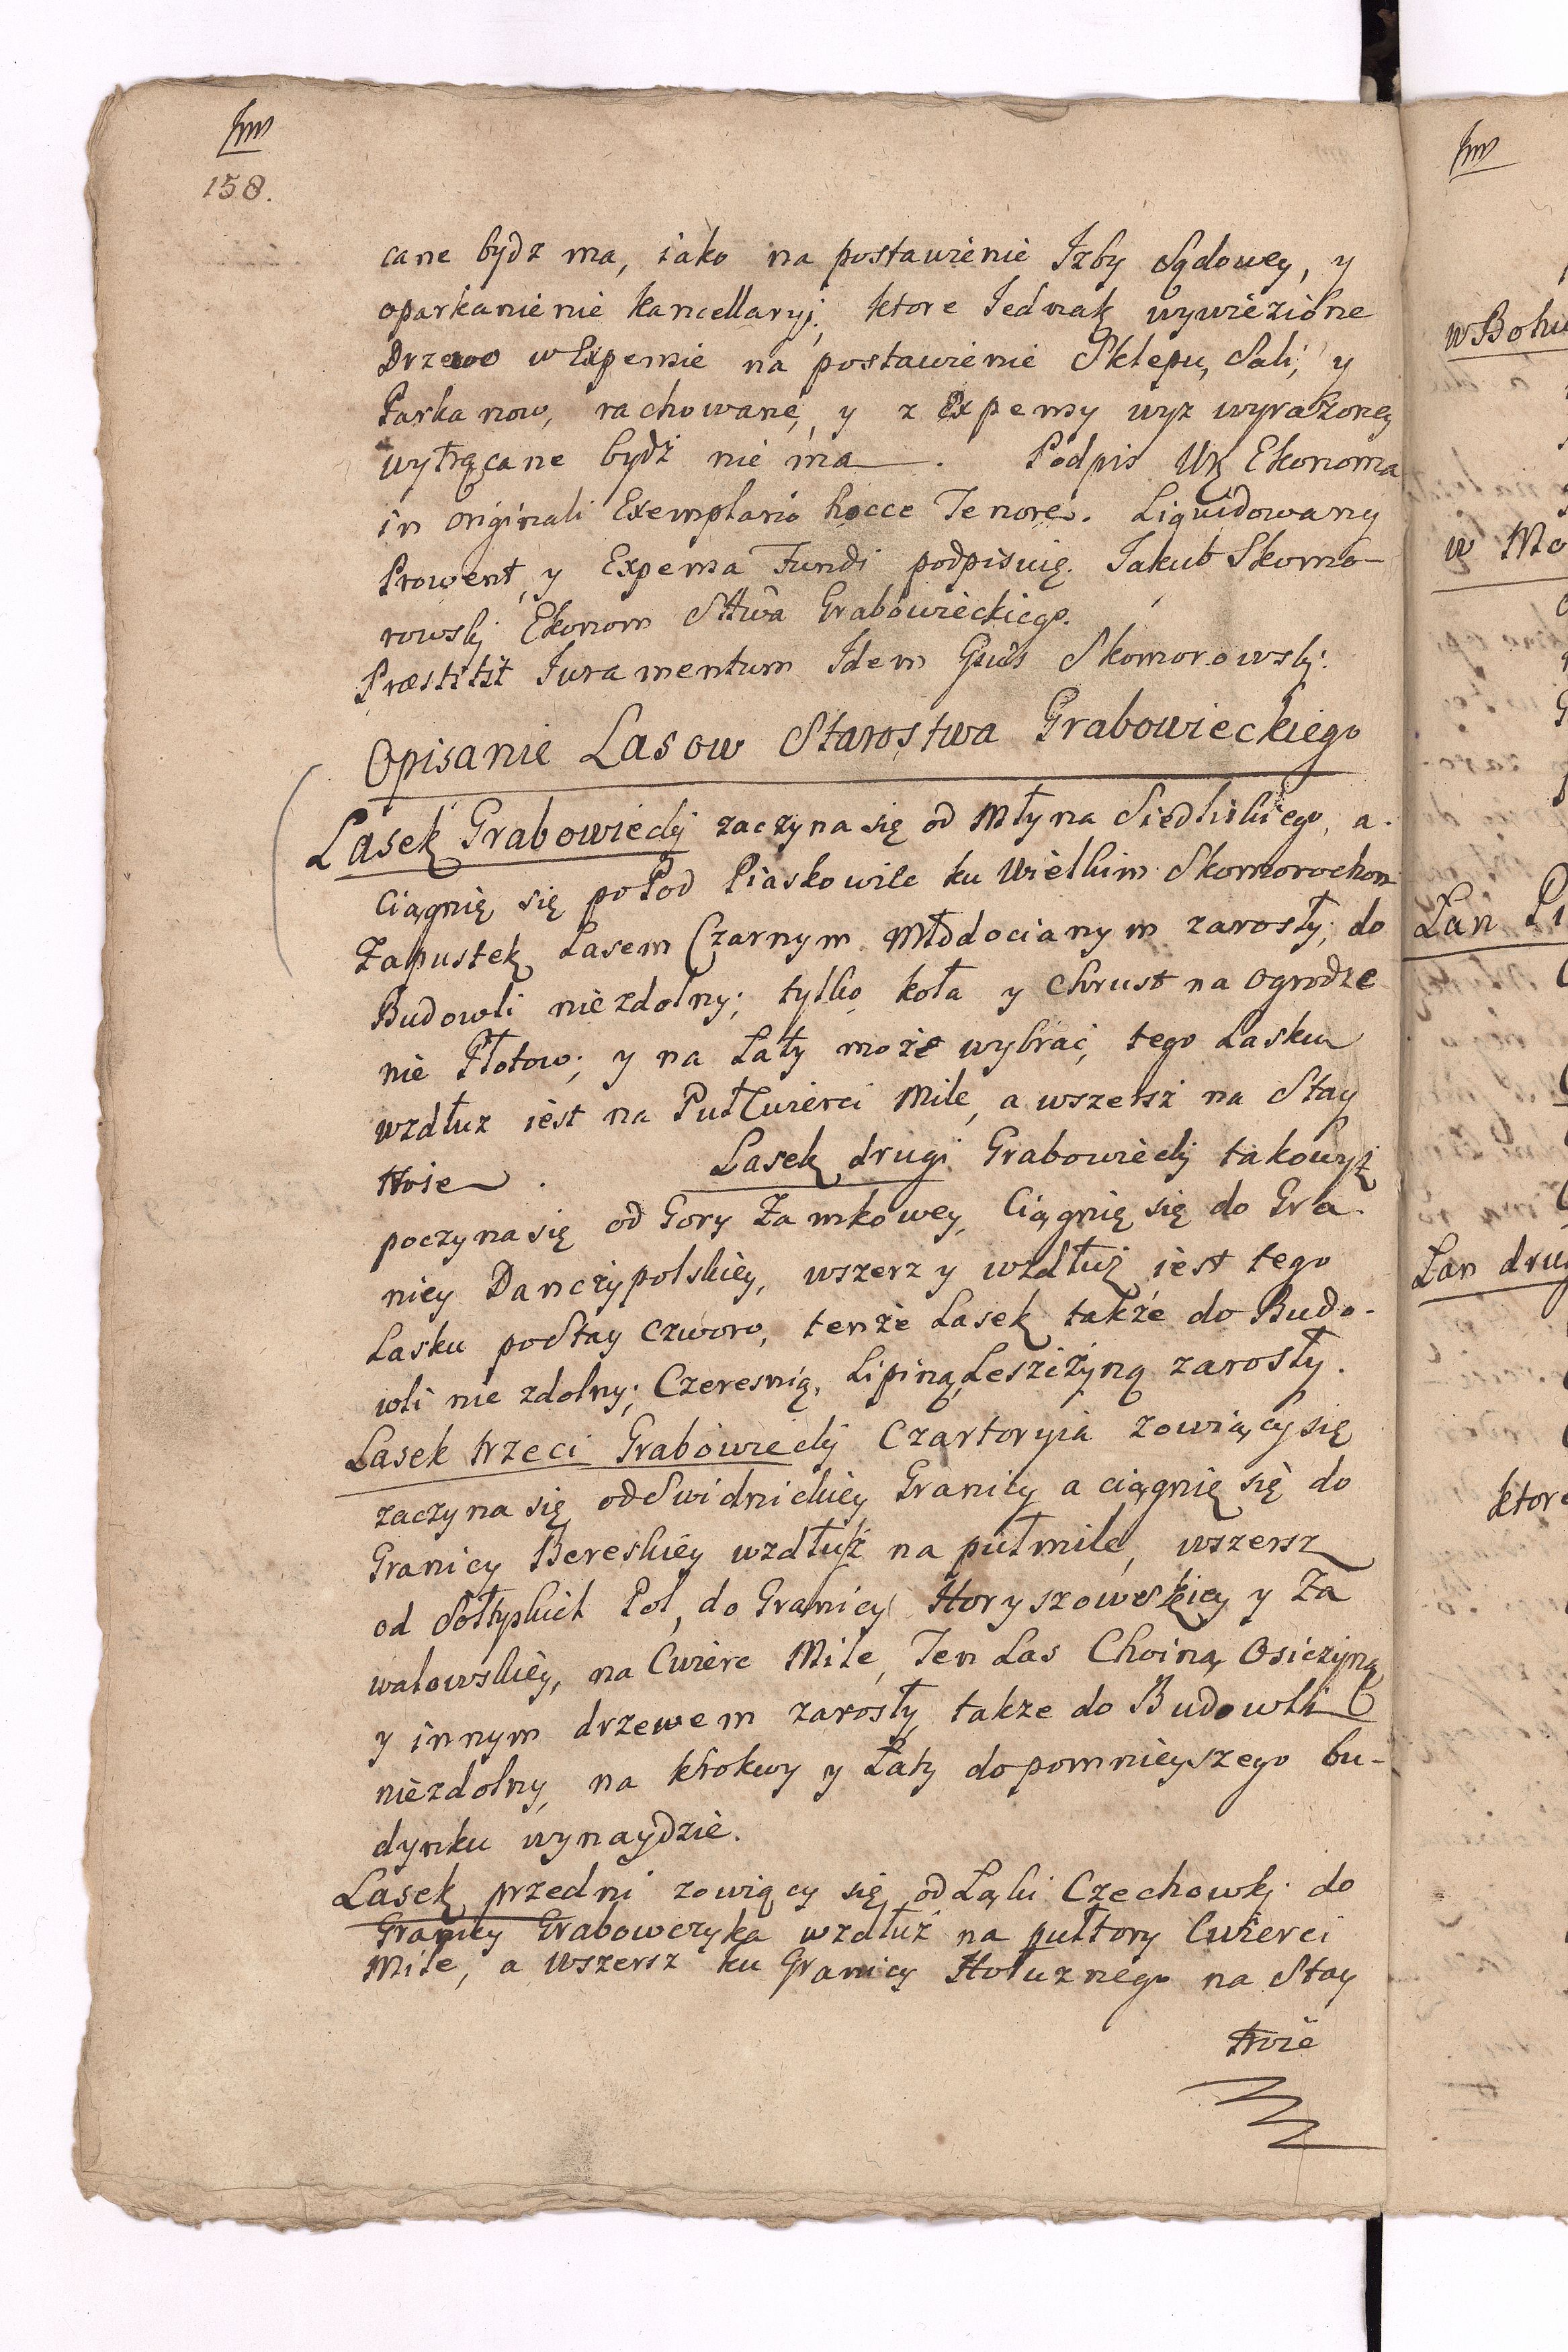 158.
cane bydz ma, iako na postawienie Izby Sądowey, y
oparkanienie kancellaryi, ktore Iednak wywieziône
Drzewo w Expensie na postawienie Sklepu, Sali, y
Parkanow, rachowane, y z Expensy wyz wyrażoney
wytrącane bydź nie ma. Podpis Ekonoma
in originali Exemplario hocce Tenore. Liquidowany
Prowent, y Expensa Fundi podpisuię. Jakub Skomo-
rowskj Ekonom Sttwa Grabowieckiego.
Præstitit Juramentum Idem Skomorowskj.
Opisanie Lasow Starostwa Grabowieckiego
Lasek Grabowieckj zaczyna się od Młyna Siedliskiego, a
ciągnię się poPod Piaskowile ku Wielkim Skomorochom
Zapustek Lasem Czarnym Młodocianym zarosły, do
Budowli niezdolny; tylko koła y Chrust na Ogrodze
nie Płotow; y na Łaty może wybrać, tego Lasku
wzdłuz iest na PułCwierci Mile, a wszersz na Stay
troie. Lasek drugi Grabowieckj takowyż
poczyna się od Gory Zamkowey, Ciągnię się do Gra-
nicy Danczypolskiey, wszerz y wzdłuż iest tego
Lasku poStay czworo, tenże Lasek także do Budo-
wli nie zdolny; Czeresnią, Lipiną, Lesziżyną zarosły.
Lasek trzeci Grabowieckj Czartoryia zowiący się
zaczyna się od Swidnickiey Granicy a ciągnię się do
Granicy Bereskiey wzdłuż na pułmile, wszersz
od Sołtyskich Pol, do Granicy Horyszowskiey y Za
walowskiey, na Cwierc Mile, Ten Las Choiną Osiczyną
y innym drzewem zarosły, takze do Budowli
niezdolny, na krokwy y Łaty do pomnieyszego bu-
dynku wynaydzie.
Lasek przedni zowiący się od Łąki Czechowkj do
Granicy Grabowczyka wzdłuż na pułtory Cwierci
Mile, a wszersz ku Granicy Hołuznego na Stay
troie
w Bohu
w Mo
Łan
Łan drug
ktore